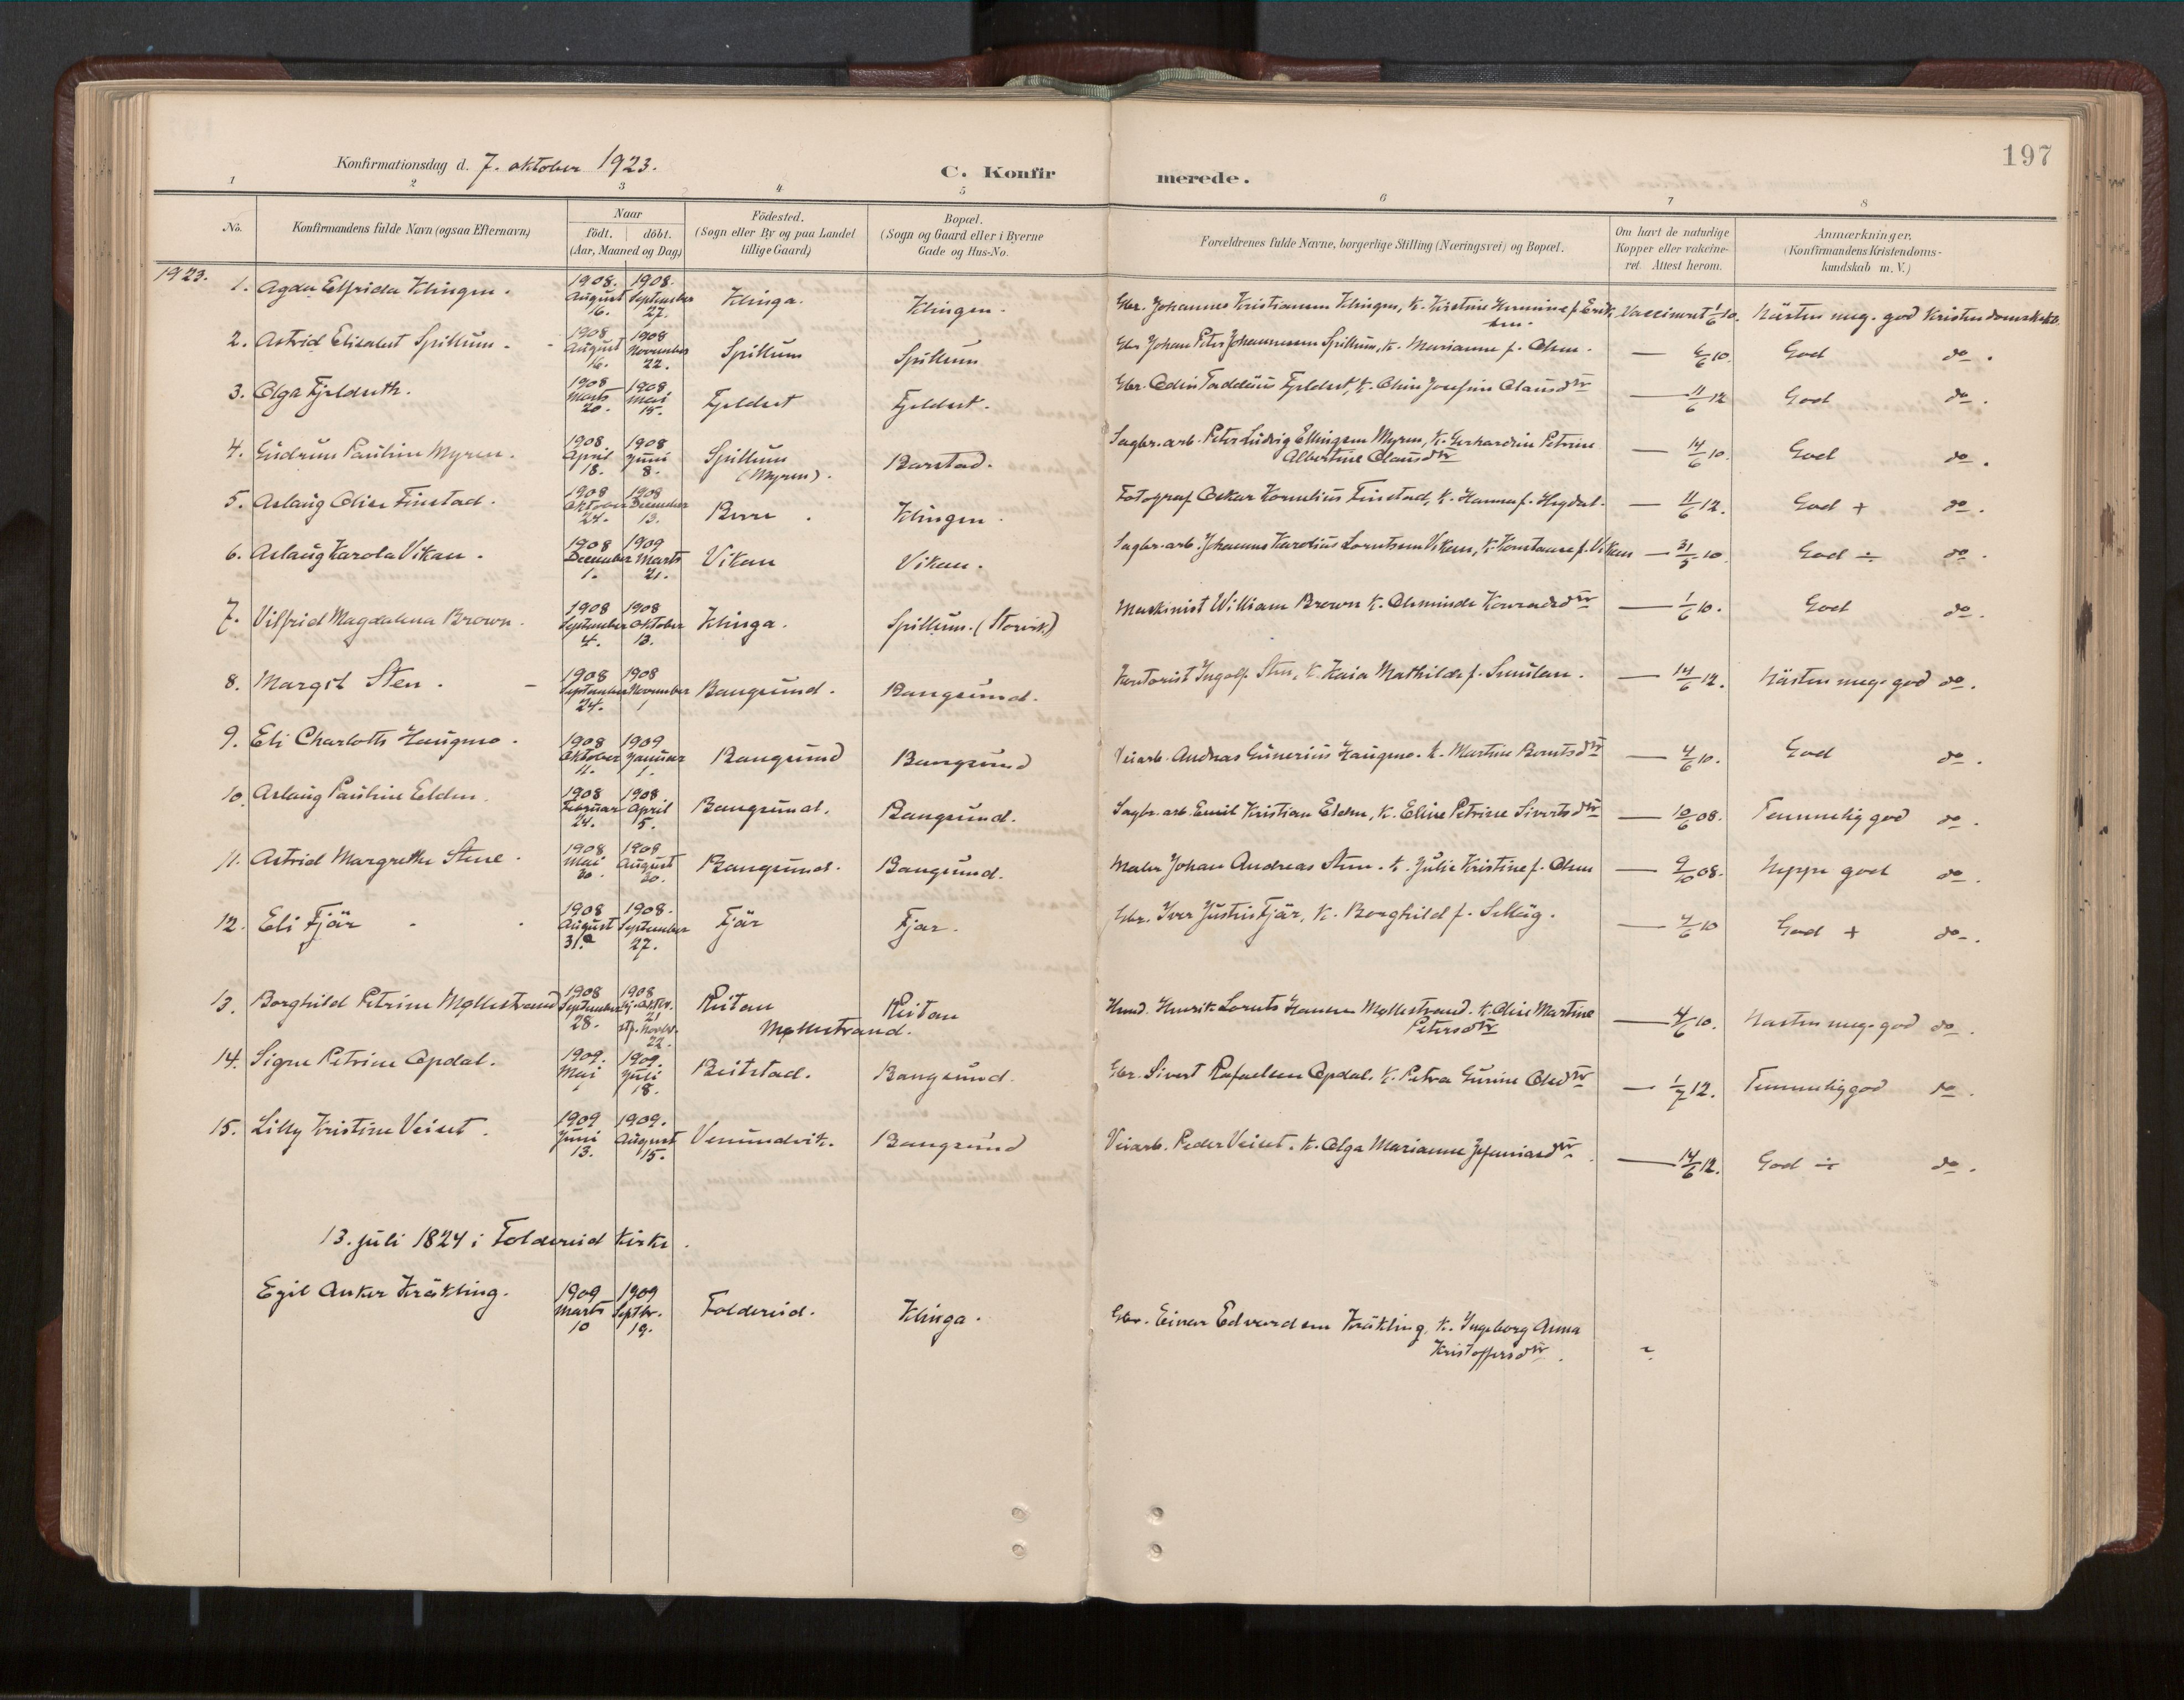 197
Konfirmationsdag d. 7. oktober 1923.
C. Konfirmerede.
1 2 3 4 5 6 7 8
No. Konfirmandens fulde Navn (ogsaa Efternavn) Naar födt. döbt. (Aar, Maaned og Dag) Födested. (Sogn eller By og paa Landet tillige Gaard) Bopæl. (Sogn og Gaard eller i Byerne Gade og Hus-No. Forældrenes fulde Navne, borgerlige Stilling (Næringsvei) og Bopæl. Om havt de naturlige Kopper eller vakcineret. Attest herom. Anmærkninger. (Konfirmandens Kristendomskundskab m. V.)
1923.
1. Agda Elfrida Klingen. 1908. August 16. 1908. September 27. Klinga. Klingen. Gbr. Johannes Kristiansen Klingen, k. Kristine Hermine f. Eriksen. Vaccineret 1/6 10. Nästen meg. god Kristendomskdsk.
2. Astrid Elisabet Spillum. 1908 August 16. 1908 November 22. Spillum Spillum. Gbr Johan Peter Johannessen Spillum, k. Marianne f. Olsen. — 4/6 10. God do.
3. Olga Fjeldseth. 1908 Marts 20. 1908. Mai 15. Fjeldset Fjeldset. Gbr. Odin Taddäus Fjeldset, k. Oline Josefine Olausdtr — 11/6 12 God do.
4. Gudrun Pauline Myren. 1908. April 18. 1908 Juni 8. Spillum (Myren). Barstad. Sagbr. arb. Peter Ludvig Ellingsen Myren, k. Gerhardine Petrine Albertine Olausdtr — 14/6 10. God do.
5. Aslaug Olise Finstad. 1908 Oktober 24. 1908 December 13. Berre. Klingen. Fotograf Oskar Kornelius Finstad, k. Hanna f. Hegdal. — 11/6 12. God + do.
6. Aslaug Karola Vikan. 1908 December 1. 1909 Marts 21. Vikan Vikan. Sagbr. arb. Johannes Karolius Lorntsen Vikan, k. Konstanse f. Vikan — 31/5 10. God ÷ do.
7. Vilfrid Magdalena Brown. 1908 September 4. 1908 Oktober 13. Klinga. Spillum. (Storvik) Maskinist William Brown k. Oleminde Konradsdtr — 1/6 10. God do.
8. Margit Sten. 1908 September 24. 1908 November 1 Bangsund. Bangsund. Kontorist Ingolf Sten, k. Kaia Mathilde f. Smulan. — 14/6 12. Nästen meg. god do.
9. Eli Charlotte Haugmo. 1908 Oktober 11. 1909 Januar 1. Bangsund Bangsund Veiarb. Andreas Gunerius Haugmo. k. Martine Berntsdtr — 4/6 10. God do.
10. Aslaug Pauline Elden. 1908 Februar 24. 1908. April 5. Bangsund. Bangsund. Sagbr. arb. Emil Kristian Elden, k. Eline Petrine Sivertsdtr — 10/6 08. Temmelig god do.
11. Astrid Margrethe Stene. 1908 Mai 30. 1908 August 30. Bangsund. Bangsund. Maler Johan Andreas Stene. k. Julie Kristine f. Olsen — 9/10 08. Neppe god do.
12. Eli Fjär 1908 August 31. 1908. September 27. Fjär Fjär. Gbr. Iver Justris Fjär, k. Borghild f. Sellæg. — 4/6 10 God + do.
13. Borghild Petrine Møllestrand 1908 September 28. 1908 hj. Oktbr. 21 stf. Novbr. 22. Reitan Møllestrand. Reitan Husmd. Henrik Lornts Hansen Møllestrand. k. Olise Martine Petersdtr — 4/6 10. Nästen meg. god do.
14. Signe Petrine Opdal. 1909. Mai 1 1909. Juli 18. Beitstad. Bangsund. Gbr. Sivert Rafaelsen Opdal. k. Petra Gurine Olsdtr — 1/7 12. Temmelig god do.
15. Lilly Kristine Veiset. 1909 Juni 13. 1909. August 15. Vemundvik. Bangsund Veiarb. Peder Veiset. k. Olga Marianne Zefaniasdtr. — 14/6 12. God ÷ do.
13. juli 1824 i Foldereid kirke.
Egil Anker Kråkling. 1909 Marts 10 1909 Septbr. 19. Foldereid. Klinga. Gbr. Einar Edvardsen Kråkling, k. Ingeborg Anna Kristoffersdtr. ~